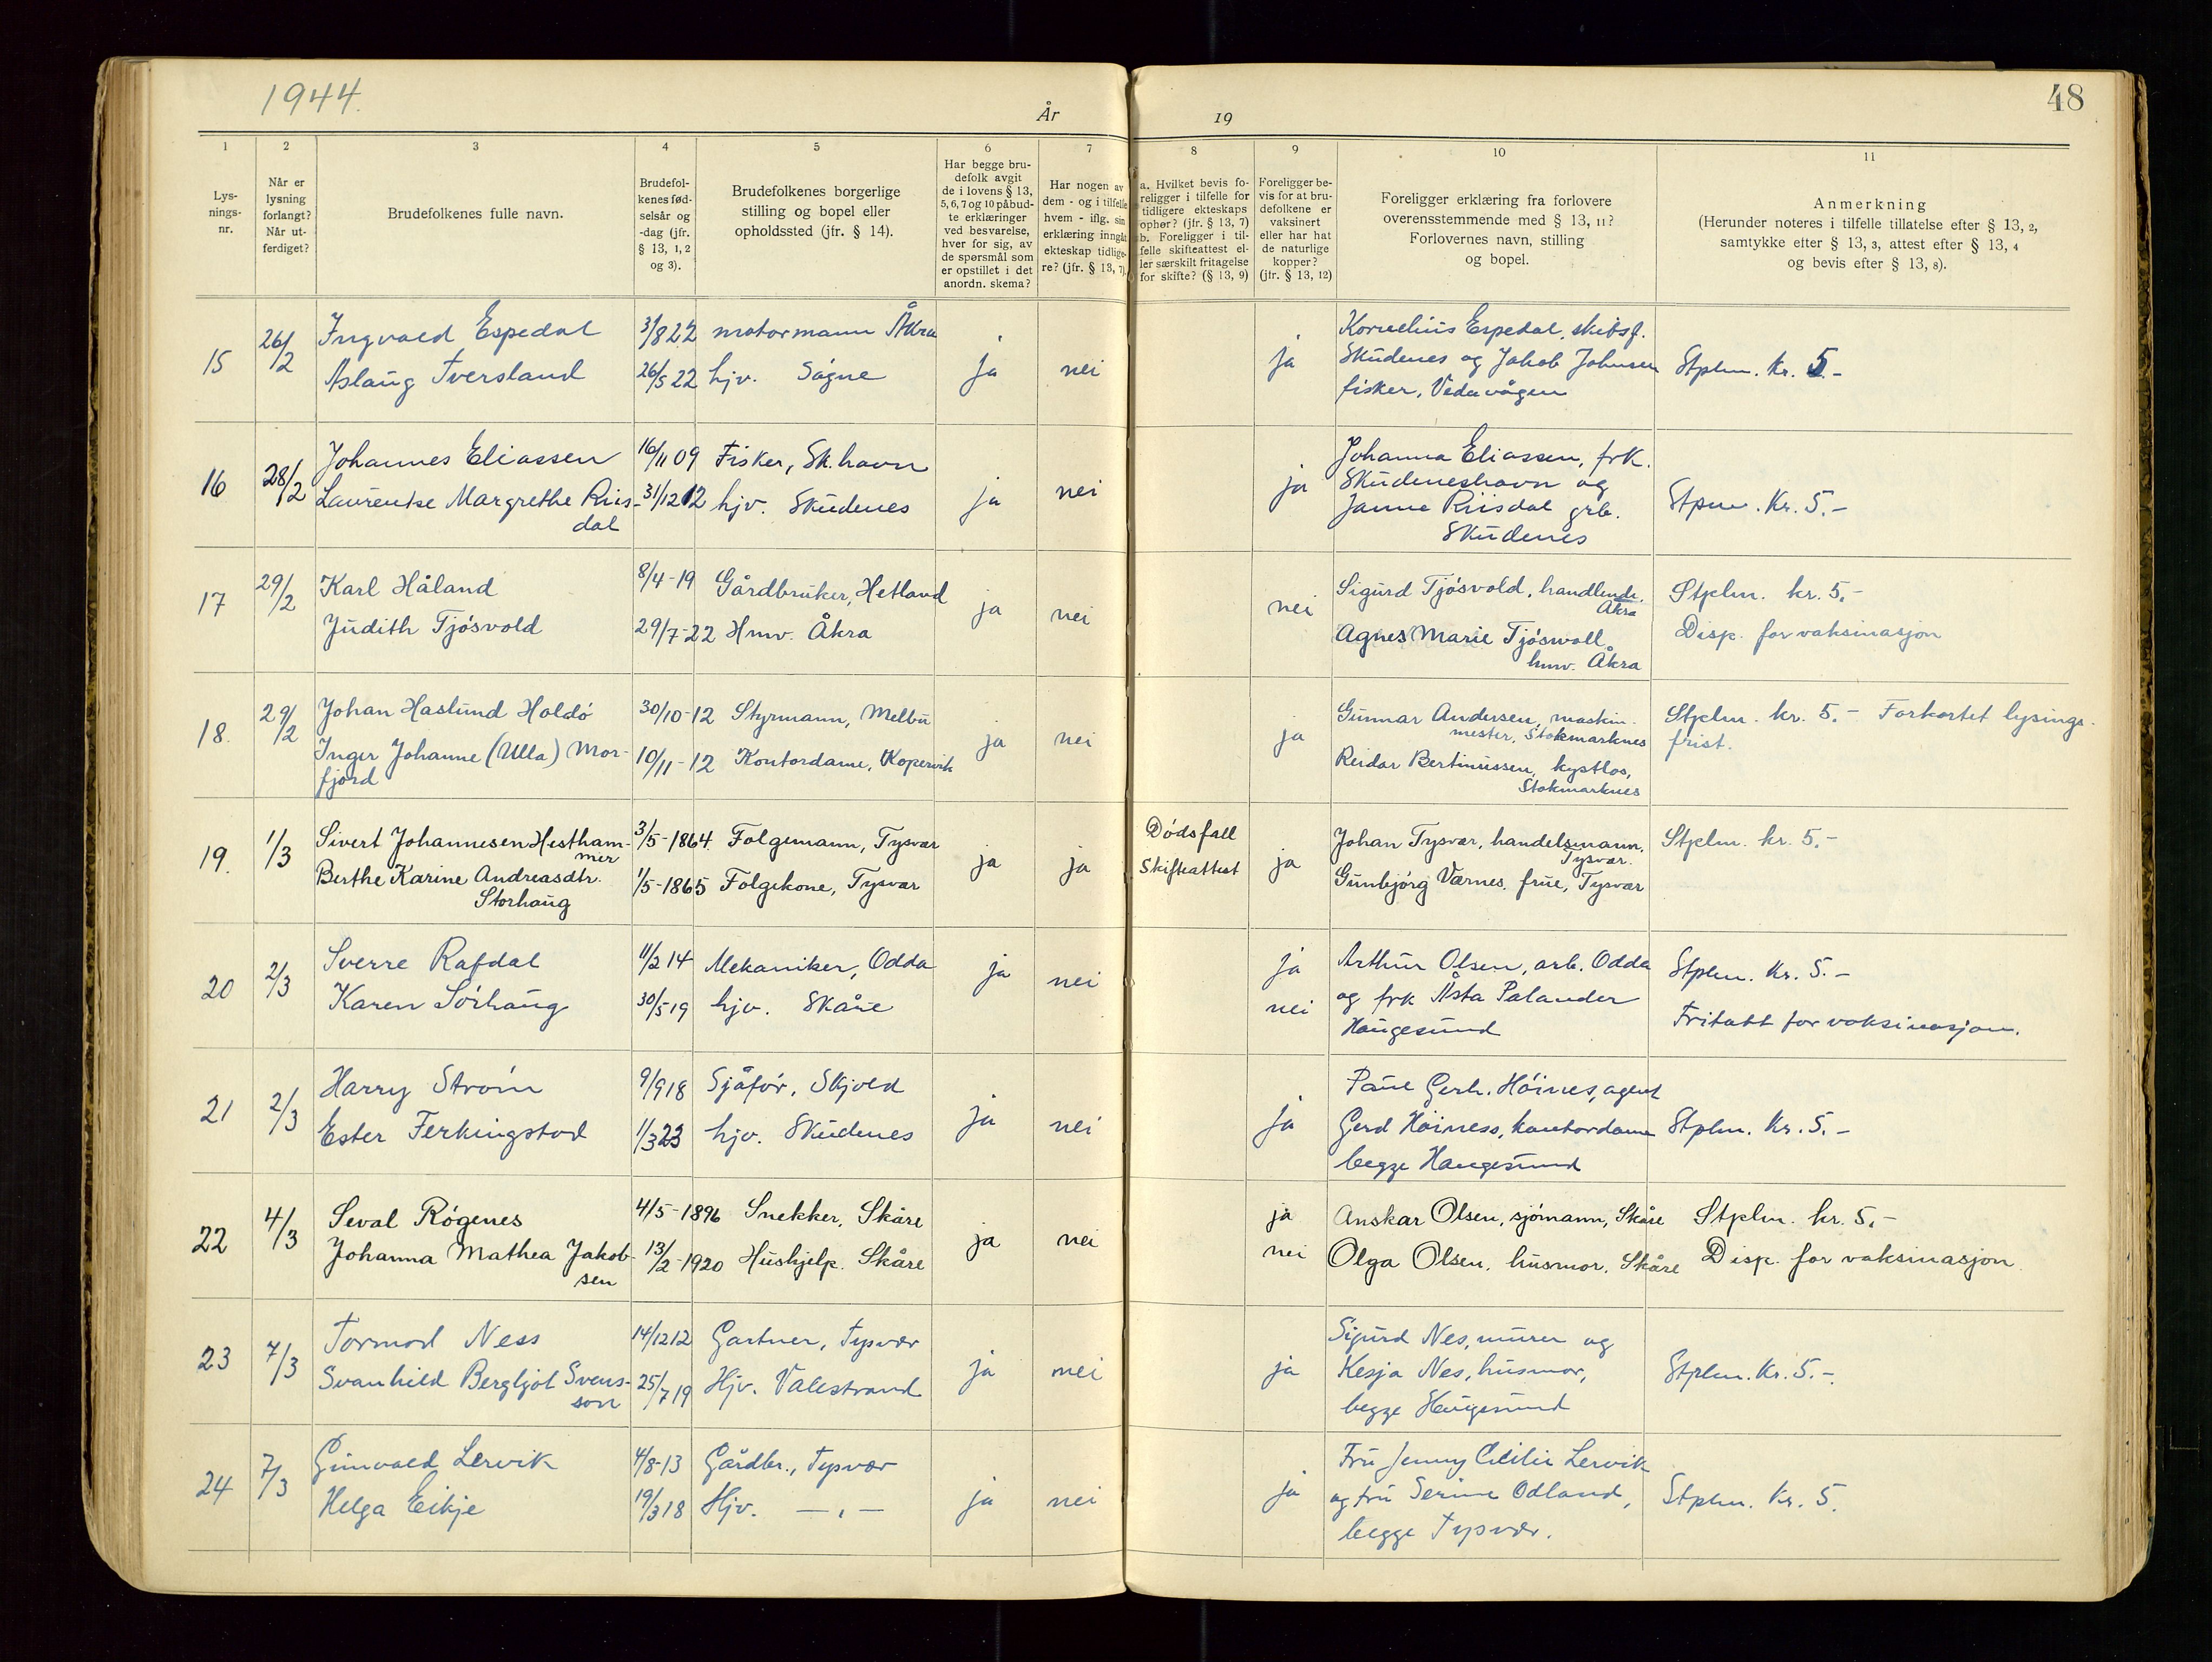 1944.
År
19
48
1
2
3
4
5
6
7
8
9
10
11
Lys-
nings-
nr.
Når er
lysning
forlangt?
Når ut-
ferdiget?
Brudefolkenes fulle navn.
Brudefol-
kenes fød-
selsår og
-dag (jfr.
§ 13, 1, 2
og 3).
Brudefolkenes borgerlige
stilling og bopel eller
opholdssted (jfr. § 14).
Har begge bru-
defolk avgit
de i lovens § 13,
5, 6, 7 og 10 påbud-
te erklæringer
ved besvarelse,
hver for sig, av
de spørsmål som
er opstillet i det
anordn. skema?
Har nogen av
dem - og i tilfelle
hvem - iflg. sin
erklæring inngåt
ekteskap tidlige-
re? (jfr. § 13, 7).
a. Hvilket bevis fo-
religger i tilfelle for
tidligere ekteskaps
ophør? (jfr. § 13, 7)
b. Foreligger i til-
felle skifteattest el-
ler særskilt fritagelse
for skifte? (§ 13, 9)
Foreligger be-
vis for at bru-
defolkene er
vaksinert
eller har hat
de naturlige
kopper?
(jfr. § 13, 12)
Foreligger erklæring fra forlovere
overensstemmende med § 13, 11?
Forlovernes navn, stilling
og bopel.
Anmerkning
(Herunder noteres i tilfelle tillatelse efter § 13, 2,
samtykke efter § 13, 3, attest efter § 13, 4
og bevis efter § 13, 8).
15 26/2 Ingvald Espedal 3/8 22 motormann Åkra ja nei ja Kornelius Espedal, skibsf.
Aslaug Tversland 26/5 22 hjv. Søgne Skudenes og Jakob Johnsen Stplm. Kr. 5.-
fisker, Vedavågen
16 28/2 Johannes Eliassen 16/11 09 Fisker, Sk.havn ja nei ja Johanna Eliassen, frk.
Laurentse Margrethe Riis- 31/12 12 hjv. Skudenes Skudeneshavn og
dal Janne Riisdal grb. Stpm. Kr. 5.-
Skudenes
17 29/2 Karl Håland 8/4-19 Gårdbruker, Hetland ja nei nei Sigurd Tjøsvold, handlende. Stplm. kr. 5,-
Åkra
Judith Tjøsvold 29/7-22 Hmv. Åkra Agnes Marie Tjøsvoll, Disp. for vaksinasjon
hmv. Åkra
18. 29/2 Johan Haslund Holdø 30/10-12 Styrmann, Melbu ja nei ja Gunnar Andersen, maskin- Stplm. kr. 5.- Forkortet lysings-
mester, Stokmarknes frist.
Inger Johanne (Ulla) Mor- 10/11-12 Kontordame, Kopervik Reidar Bertinussen, kystlos,
fjord Stokmarknes
19. 1/3 Sivert Johannesen Hestham- 3/5-1864. Folgemann, Tysvær ja ja Dødsfall ja Johan Tysvær, handelsmann, Stplm. kr. 5.-
mer Tysvær.
Berthe Karine Andreasdtr. 1/5-1865 Folgekone, Tysvær Skifteattest Gunbjørg Værnes, frue, Tysvær
Storhaug
20 2/3 Sverre Rafdal 11/2 14 Mekaniker, Odda ja nei ja Arthur Olsen, arb. Odda Stplm. Kr. 5.-
Karen Sørhaug 30/5 19 hjv. Skåre nei og frk Åsta Palander
Haugesund Fritatt for vaksinasjon.
21 2/3 Harry Strøm 9/9 18 Sjåfør, Skjold ja nei ja Paul Gerh. Høines, agent
Ester Ferkingstad 1/3 23 hjv. Skudenes Gerd Høiness, kontordame Stplm. Kr. 5.-
begge Haugesund
22 4/3 Seval Røgenes 4/5-1896 Snekker, Skåre ja nei ja Anskar Olsen, sjømann, Skåre Stplm. kr. 5,-
Johanna Mathea Jakob- 13/2-1920 Hushjelp. Skåre nei Olga Olsen, husmor, Skåre Disp. for vaksinasjon
sen
23 7/3 Tormod Ness 14/12 12 Gartner, Tysvær ja nei ja Sigurd Nes, murer og
Svanhild Bergljot Svens- 25/7 19 Hjv. Valestrand Kesja Nes, husmor, Stplm. Kr. 5.-
son begge Haugesund
24 7/3 Gunvald Lervik 4/8-13 Gårdbr., Tysvær ja nei ja Fru Jenny Cecilie Lervik
Helga Eikje 19/3 18 Hjv. — „ — og fru Serine Odland, Stplm. Kr. 5.
begge Tysvær.